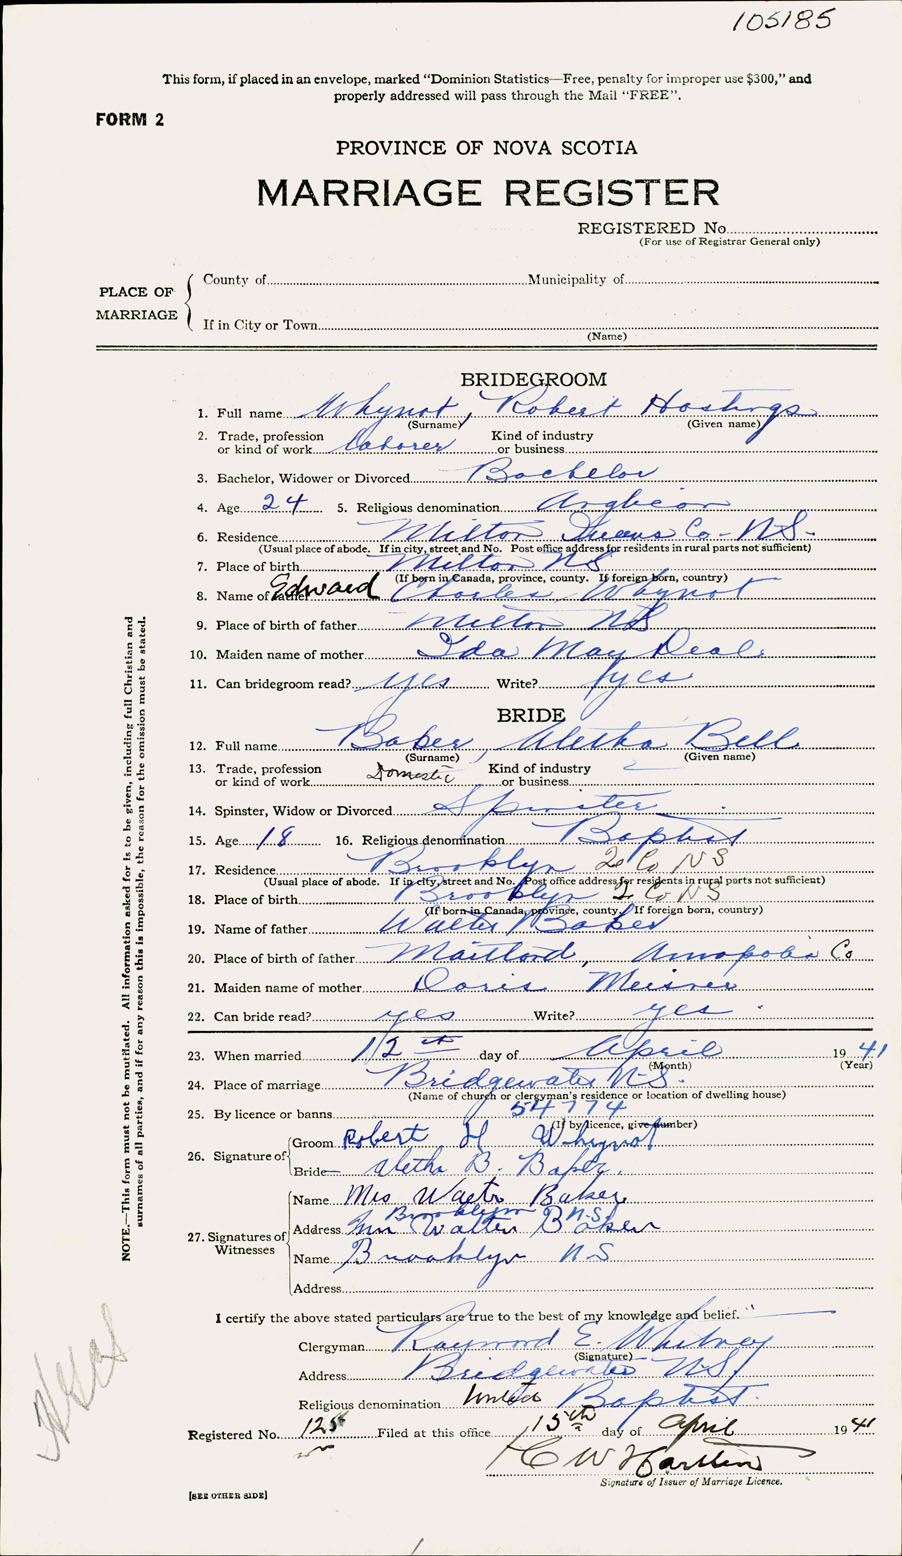 105185
This form, if placed in an envelope, marked "Dominion Statistics—Free, penalty for improper use $300," and
properly addressed will pass through the Mail "FREE".
FORM 2
PROVINCE OF NOVA SCOTIA
MARRIAGE REGISTER
REGISTERED No
(For use of Registrar General only)
PLACE OF MARRIAGE
County of Municipality of
If in City or Town
(Name)
BRIDEGROOM
1. Full name Whynot, Robert Hastings
(Surname) (Given name)
2. Trade, profession or kind of work laborer Kind of industry or business
3. Bachelor, Widower or Divorced Bachelor
4. Age 24 5. Religious denomination Anglican
6. Residence Milton Queens Co - N.S.
(Usual place of abode. If in city, street and No. Post office address for residents in rural parts not sufficient)
7. Place of birth Milton NS
(If born in Canada, province, county. If foreign born, country)
8. Name of father Edward Charles Whynot
9. Place of birth of father Milton NS
10. Maiden name of mother Ida May Deal
11. Can bridegroom read? yes Write? yes
BRIDE
12. Full name Baker, Aletha Bell
(Surname) (Given name)
13. Trade, profession or kind of work Domestic Kind of industry or business
14. Spinster, Widow or Divorced Spinster
15. Age 18 16. Religious denomination Baptist
17. Residence Brooklyn Q Co NS
(Usual place of abode. If in city, street and No. Post office address for residents in rural parts not sufficient)
18. Place of birth Brooklyn Q Co NS
(If born in Canada, province, county. If foreign born, country)
19. Name of father Walter Baker
20. Place of birth of father Maitland, Annapolis Co
21. Maiden name of mother Doris Meisner
22. Can bride read? yes Write? yes
23. When married 12th day of April 1941
(Month) (Year)
24. Place of marriage Bridgewater N.S.
(Name of church or clergyman's residence or location of dwelling house)
25. By licence or banns 54774
(If by licence, give number)
26. Signature of Groom Robert H Whynot
Bride Aletha B. Baker
27. Signatures of Witnesses
Name Mrs Walter Baker
Brooklyn N.S.
Address Walter Baker
Name Brooklyn NS
Address
I certify the above stated particulars are true to the best of my knowledge and belief.
Clergyman Raymond E. Whitney
(Signature)
Address Bridgewater NS
Religious denomination United Baptist
Registered No. 125 Filed at this office 15th day of April 1941
Signature of Issuer of Marriage Licence.
[SEE OTHER SIDE]
NOTE.—This form must not be mutilated. All information asked for is to be given, including full Christian and
surnames of all parties, and if for any reason this is impossible, the reason for the omission must be stated.